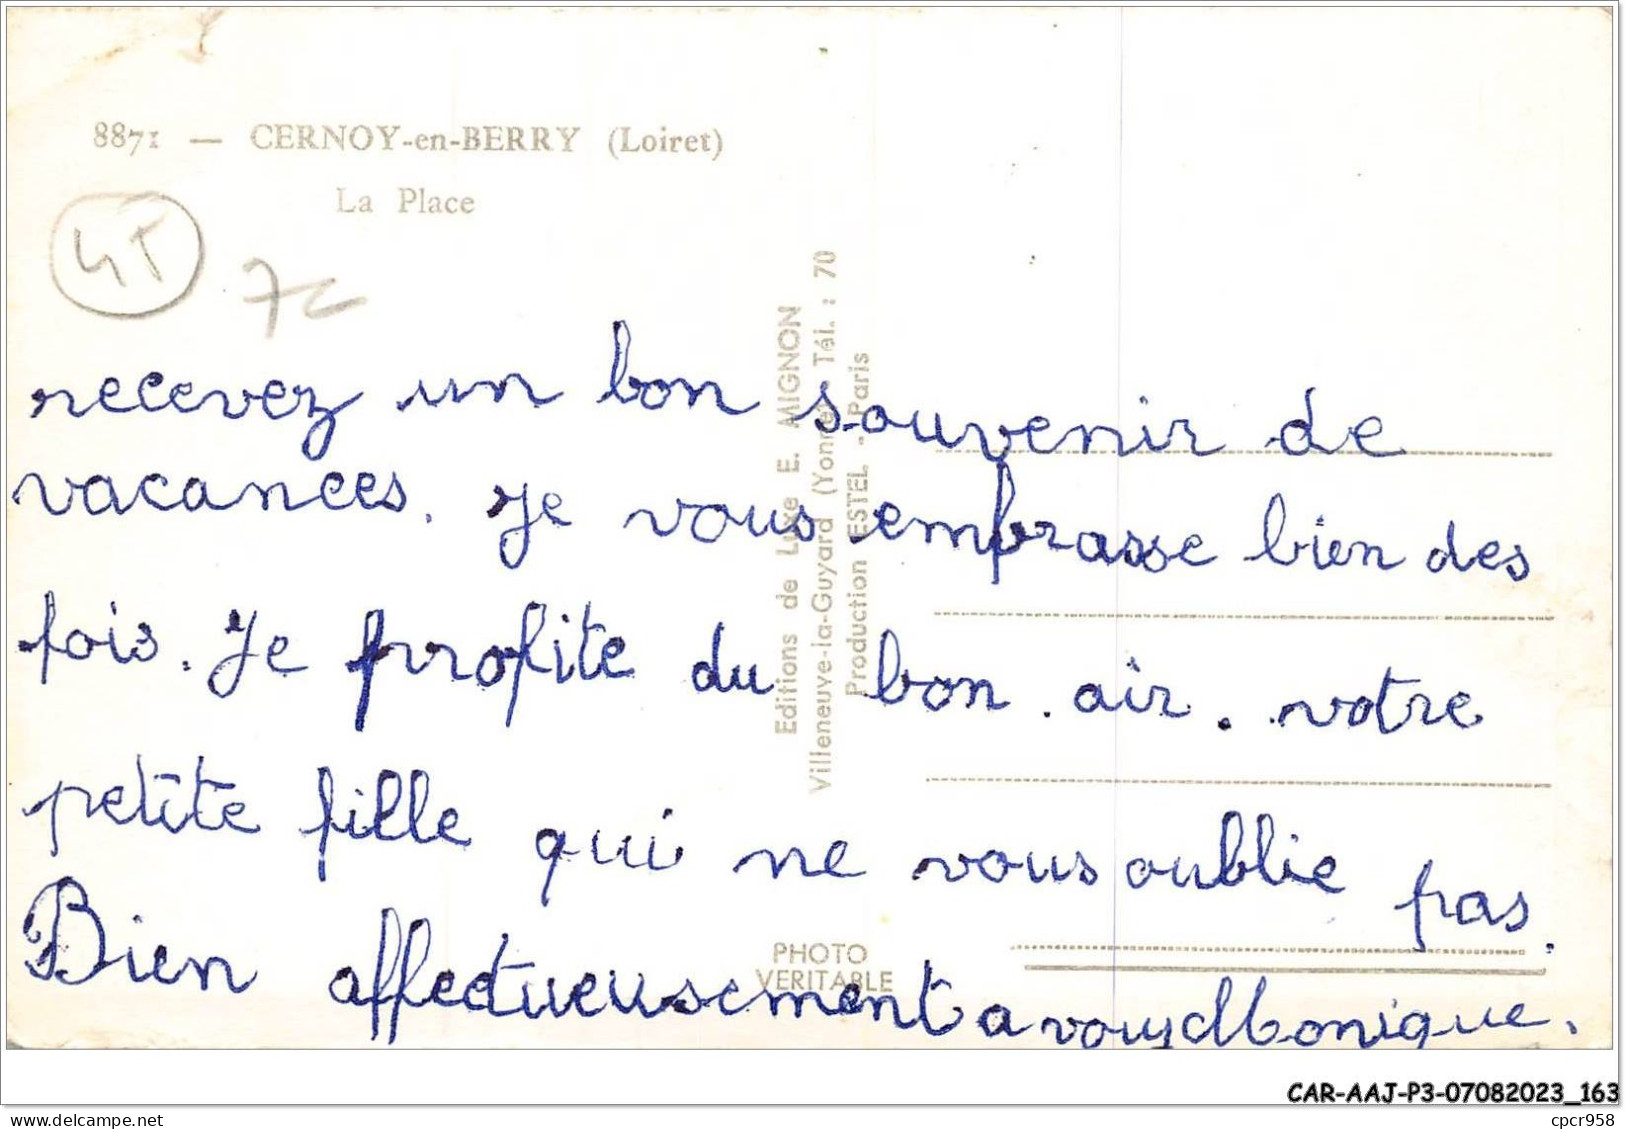 8871 — CERNOY-en-BERRY (Loiret)
La Place
recevez un bon souvenir de
vacances. Je vous embrasse bien des
fois. Je profite du bon air. votre
petite fille qui ne vous oublie pas.
Bien affectueusement a vous Monique.
Editions de Luxe E. MIGNON
Villeneuve-la-Guyard (Yonne) Tél. : 70
Production ESTEL - Paris
PHOTO
VERITABLE
CAR-AAJ-P3-07082023_163
cpcr958